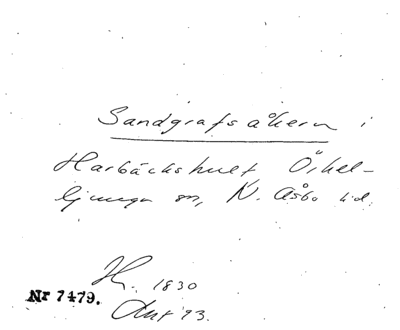 Sandgrafsåkern i
Harbäckshult Örkel-
ljunga sn, N. Åsbo hd.
H. 1830
Nr 7479.
93.